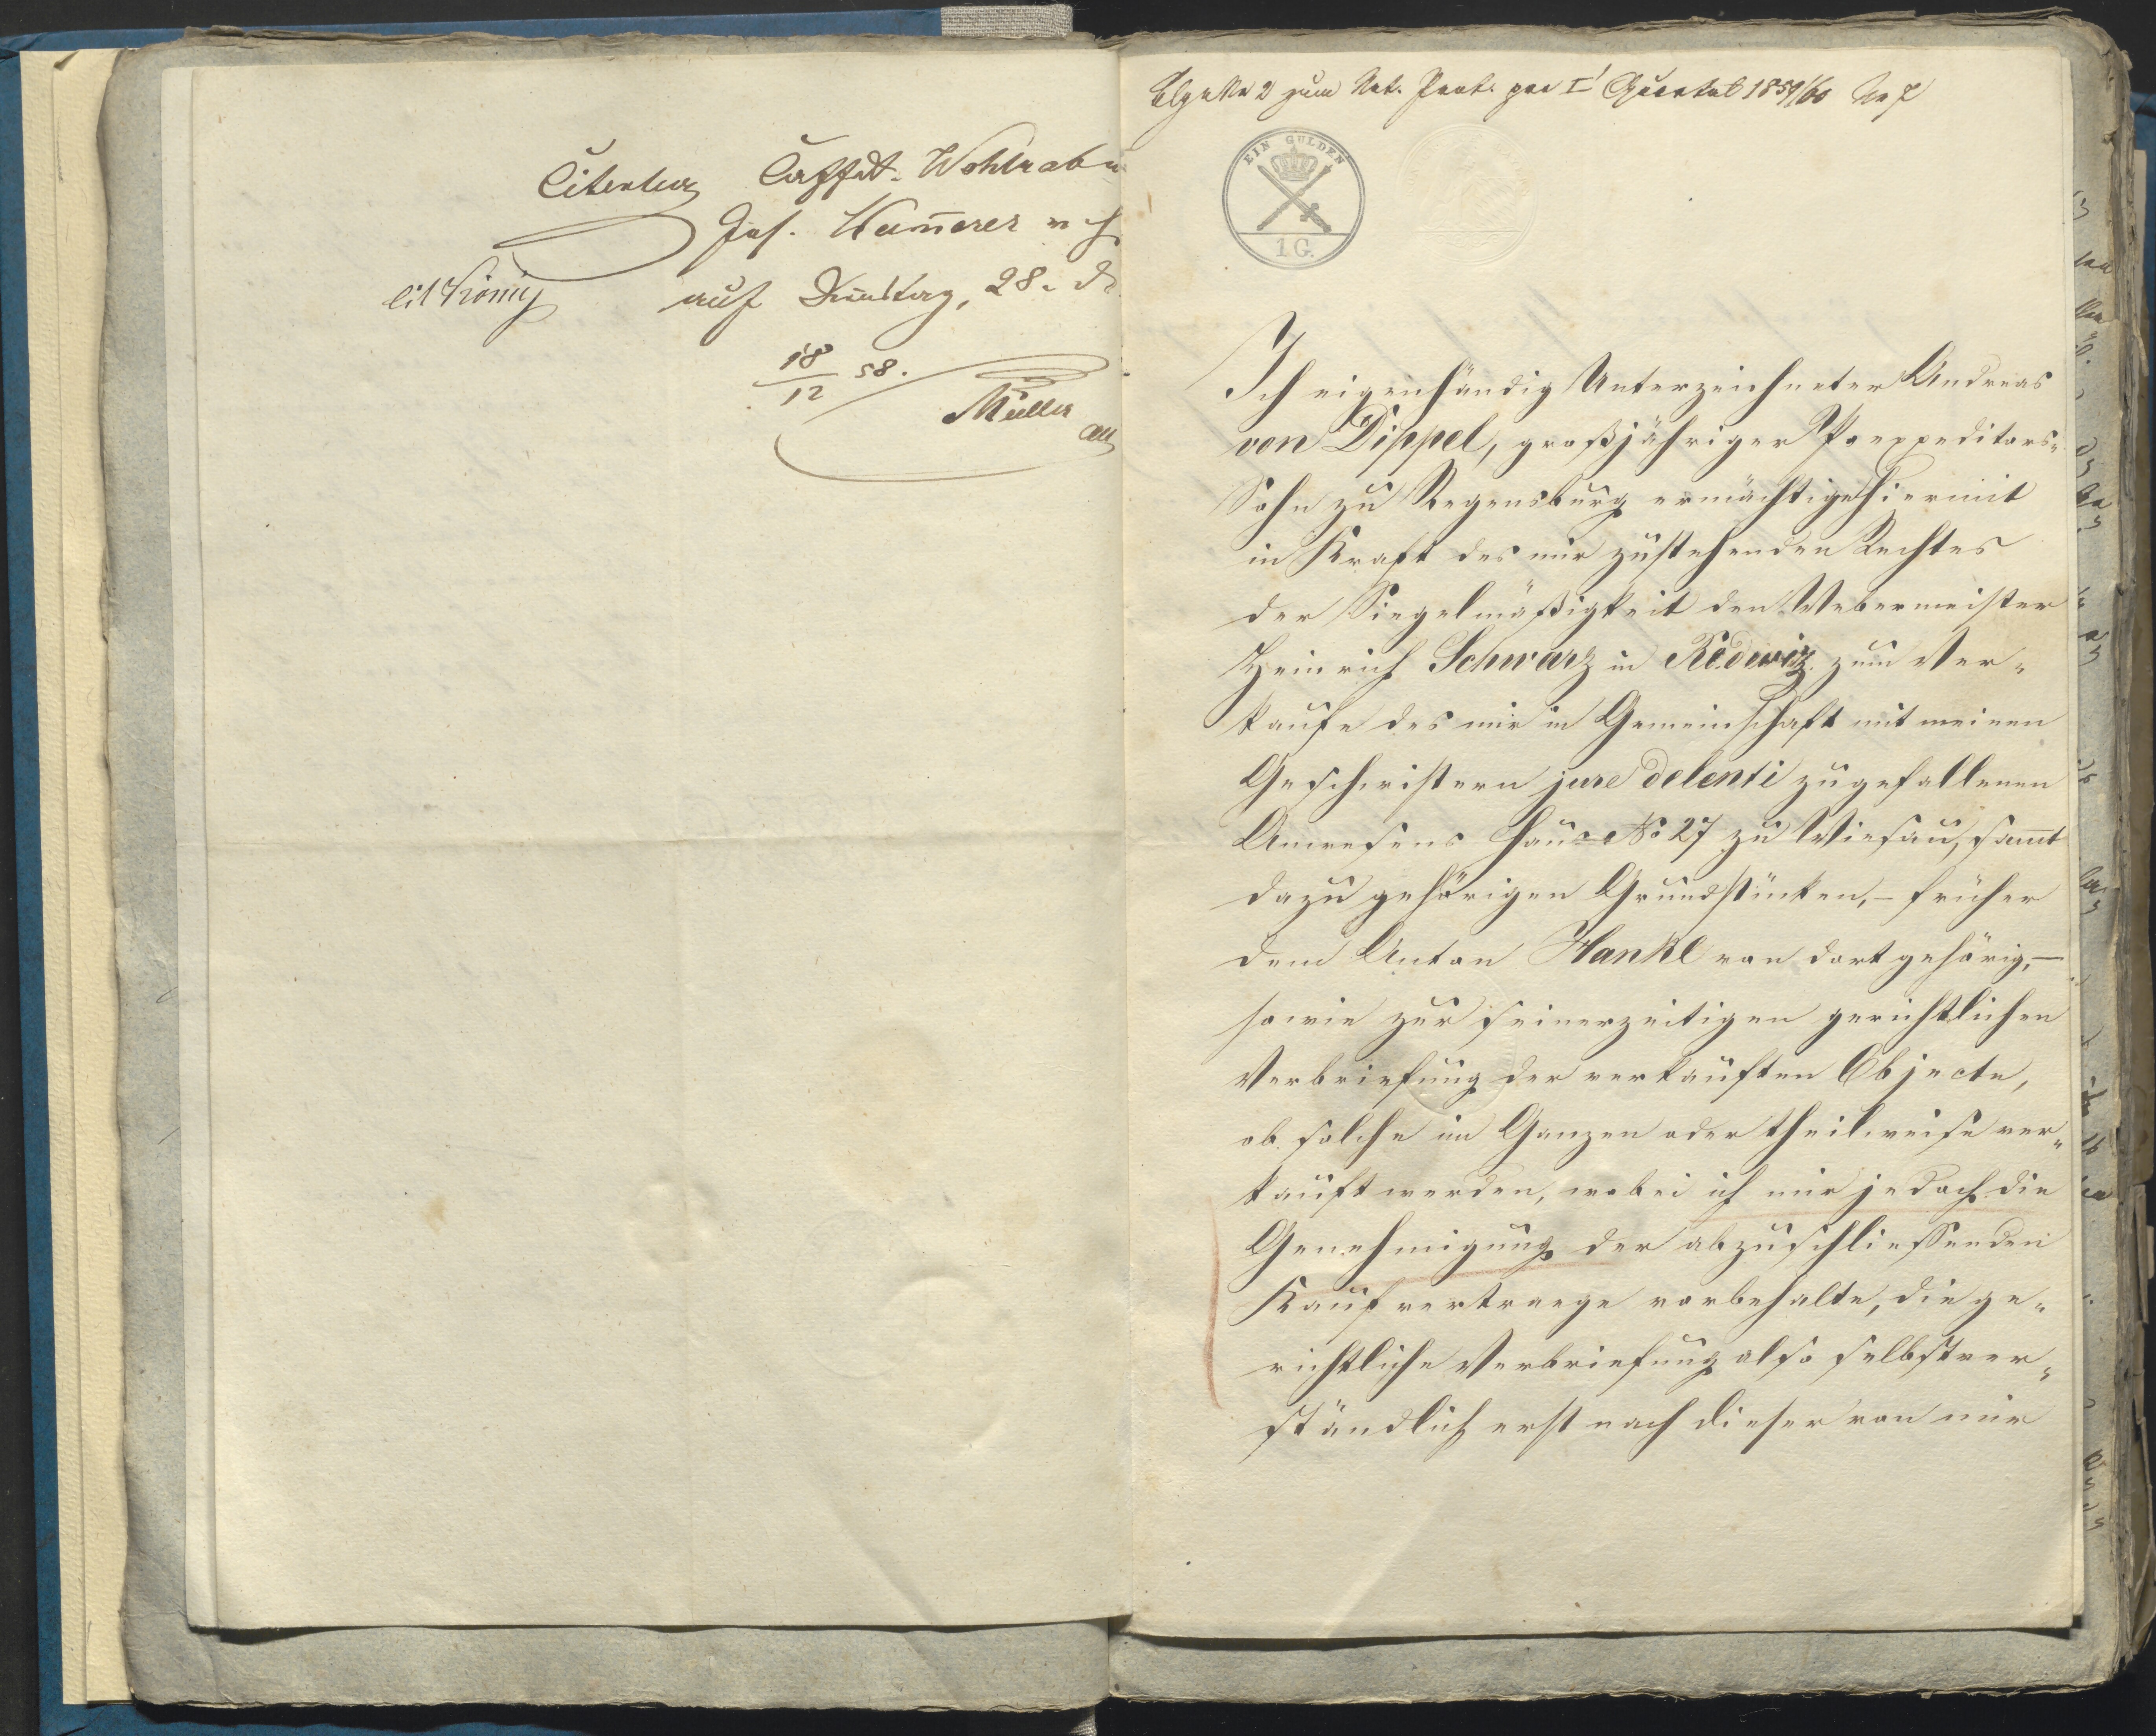 Citentur Wohlrab
Jos. Kam̄erer
cit König auf Dienstag, 28. d
18/12 58.
Müller
2 zum Not. Prot. pro I Quartal 1859/60 No 7
EIN GULDEN
1 G.
Ich eigenhändig Unterzeichneter Andreas
von Dippel, großjähriger Porexpeditors-
Sohn zu Regensburg ermächtige hiermit
in Kraft des mir zustehenden Rechtes
der Siegelmäßigkeit den Webermeister
Heinrich Schwarz in Redwiz zum Ver-
kaufe des mir in Gemeinschaft mit meinen
Geschwistern jure delenti zugefallenen
Anwesens Haus No 27 zu Wiesau, sam̄t
dazu gehörigen Grundstücken, – früher
dem Anton Hankl von dort gehörig, –
sowie zur seinerzeitigen gerichtlichen
Verbriefung der verkauften Objecte,
ob solche im Ganzen oder theilweise ver-
kauft werden, wobei ich mir jedoch die
Genehmigung der abzuschliessenden
Kaufvertraege vorbehalte, die ge-
richtliche Verbriefung also selbstver-
ständlich erst nach dieser von mir